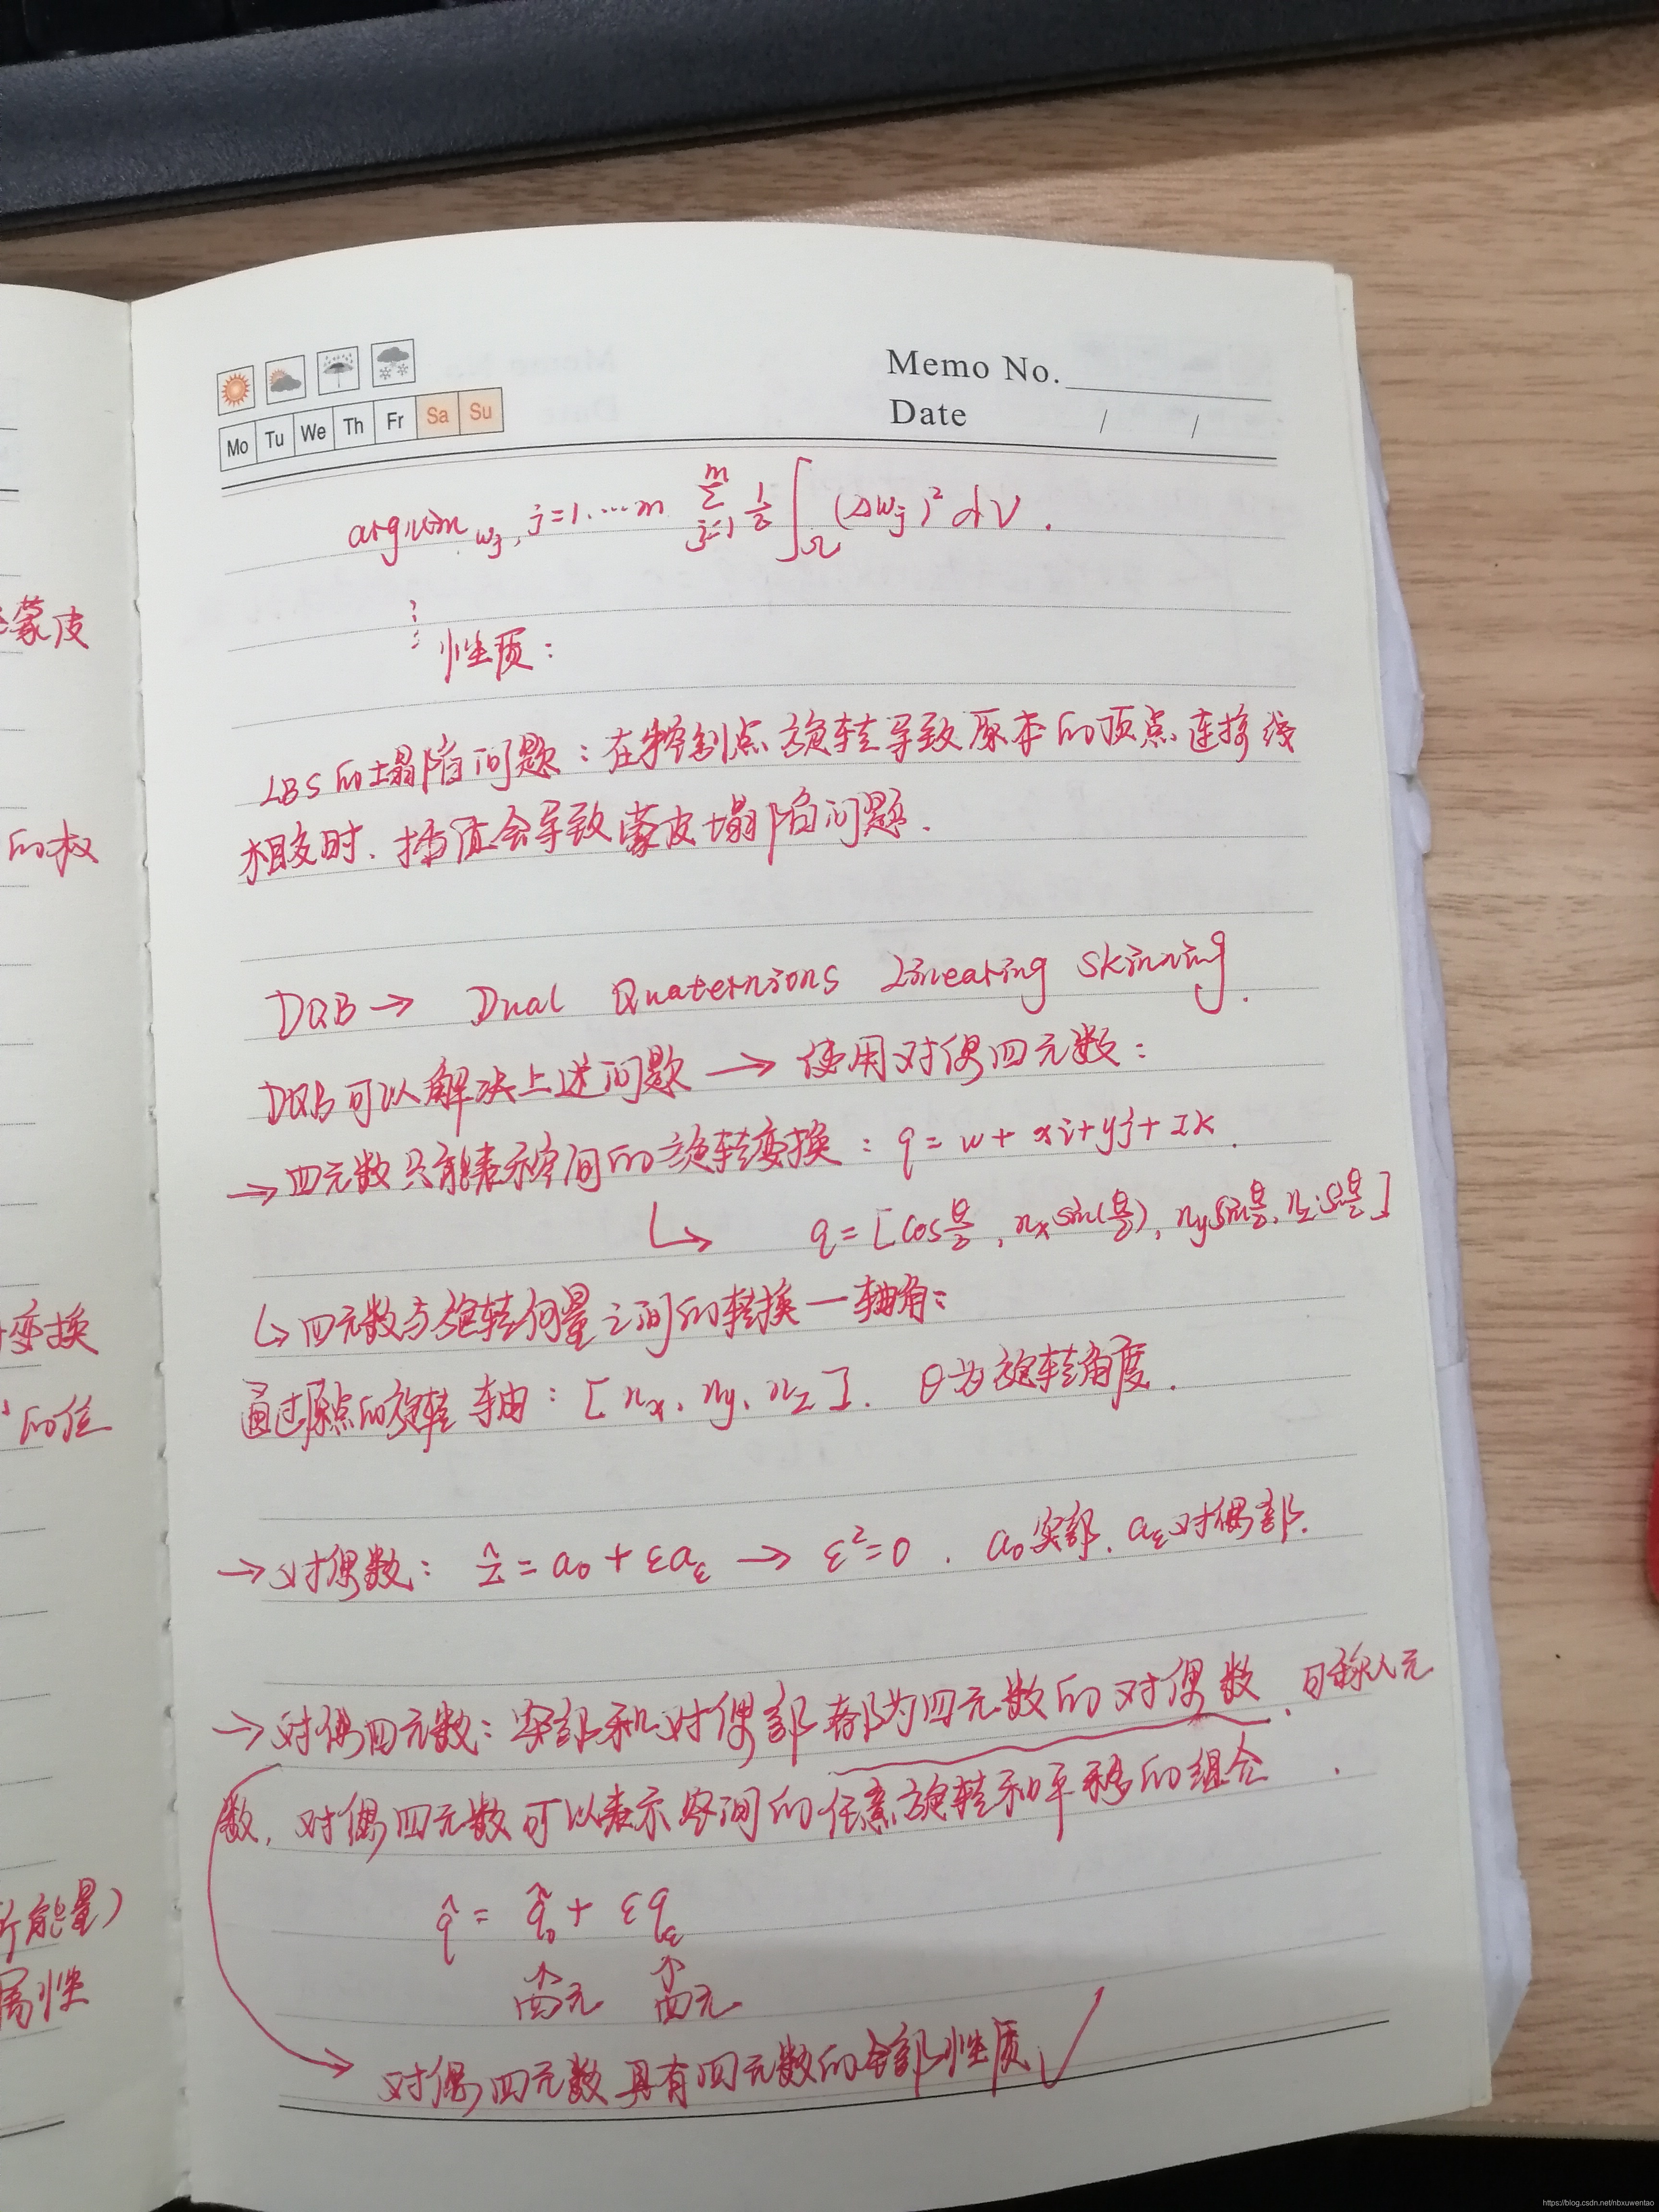 Mo Tu We Th Fr Sa Su
Memo No.
Date / /
argmin wj, j=1.…m ∑ j=1 m 1/2 ∫Ω (Δwj)² dV.
性质:
LBS的塌陷问题:在控制点旋转导致原本的顶点连接线
相交时.插值会导致蒙皮塌陷问题.
DQB→ Dual Quaternions Linearing Skinning.
DQB可以解决上述问题→使用对偶四元数:
→四元数只能表示空间的旋转变换:q=w+xi+yj+zk.
↳ q=[cosθ/2, nx sin(θ/2), ny sinθ/2, nz sinθ/2]
↳四元数与旋转向量之间的转换—轴角:
通过原点的旋转轴:[nx, ny, nz]. θ为旋转角度.
→对偶数: ẑ=a0+εaε→ε²=0. a0实部. aε对偶部.
→对偶四元数:实部和对偶部都为四元数的对偶数.
八元
数,对偶四元数可以表示空间的任意旋转和平移的组合.
q̂ = q̂0 + εqε
↑ ↑
四元 四元
对偶四元数具有四元数的全部性质
蒙皮
的权
变换
的位
能量)
属性
https://blog.csdn.net/nbxuwentao